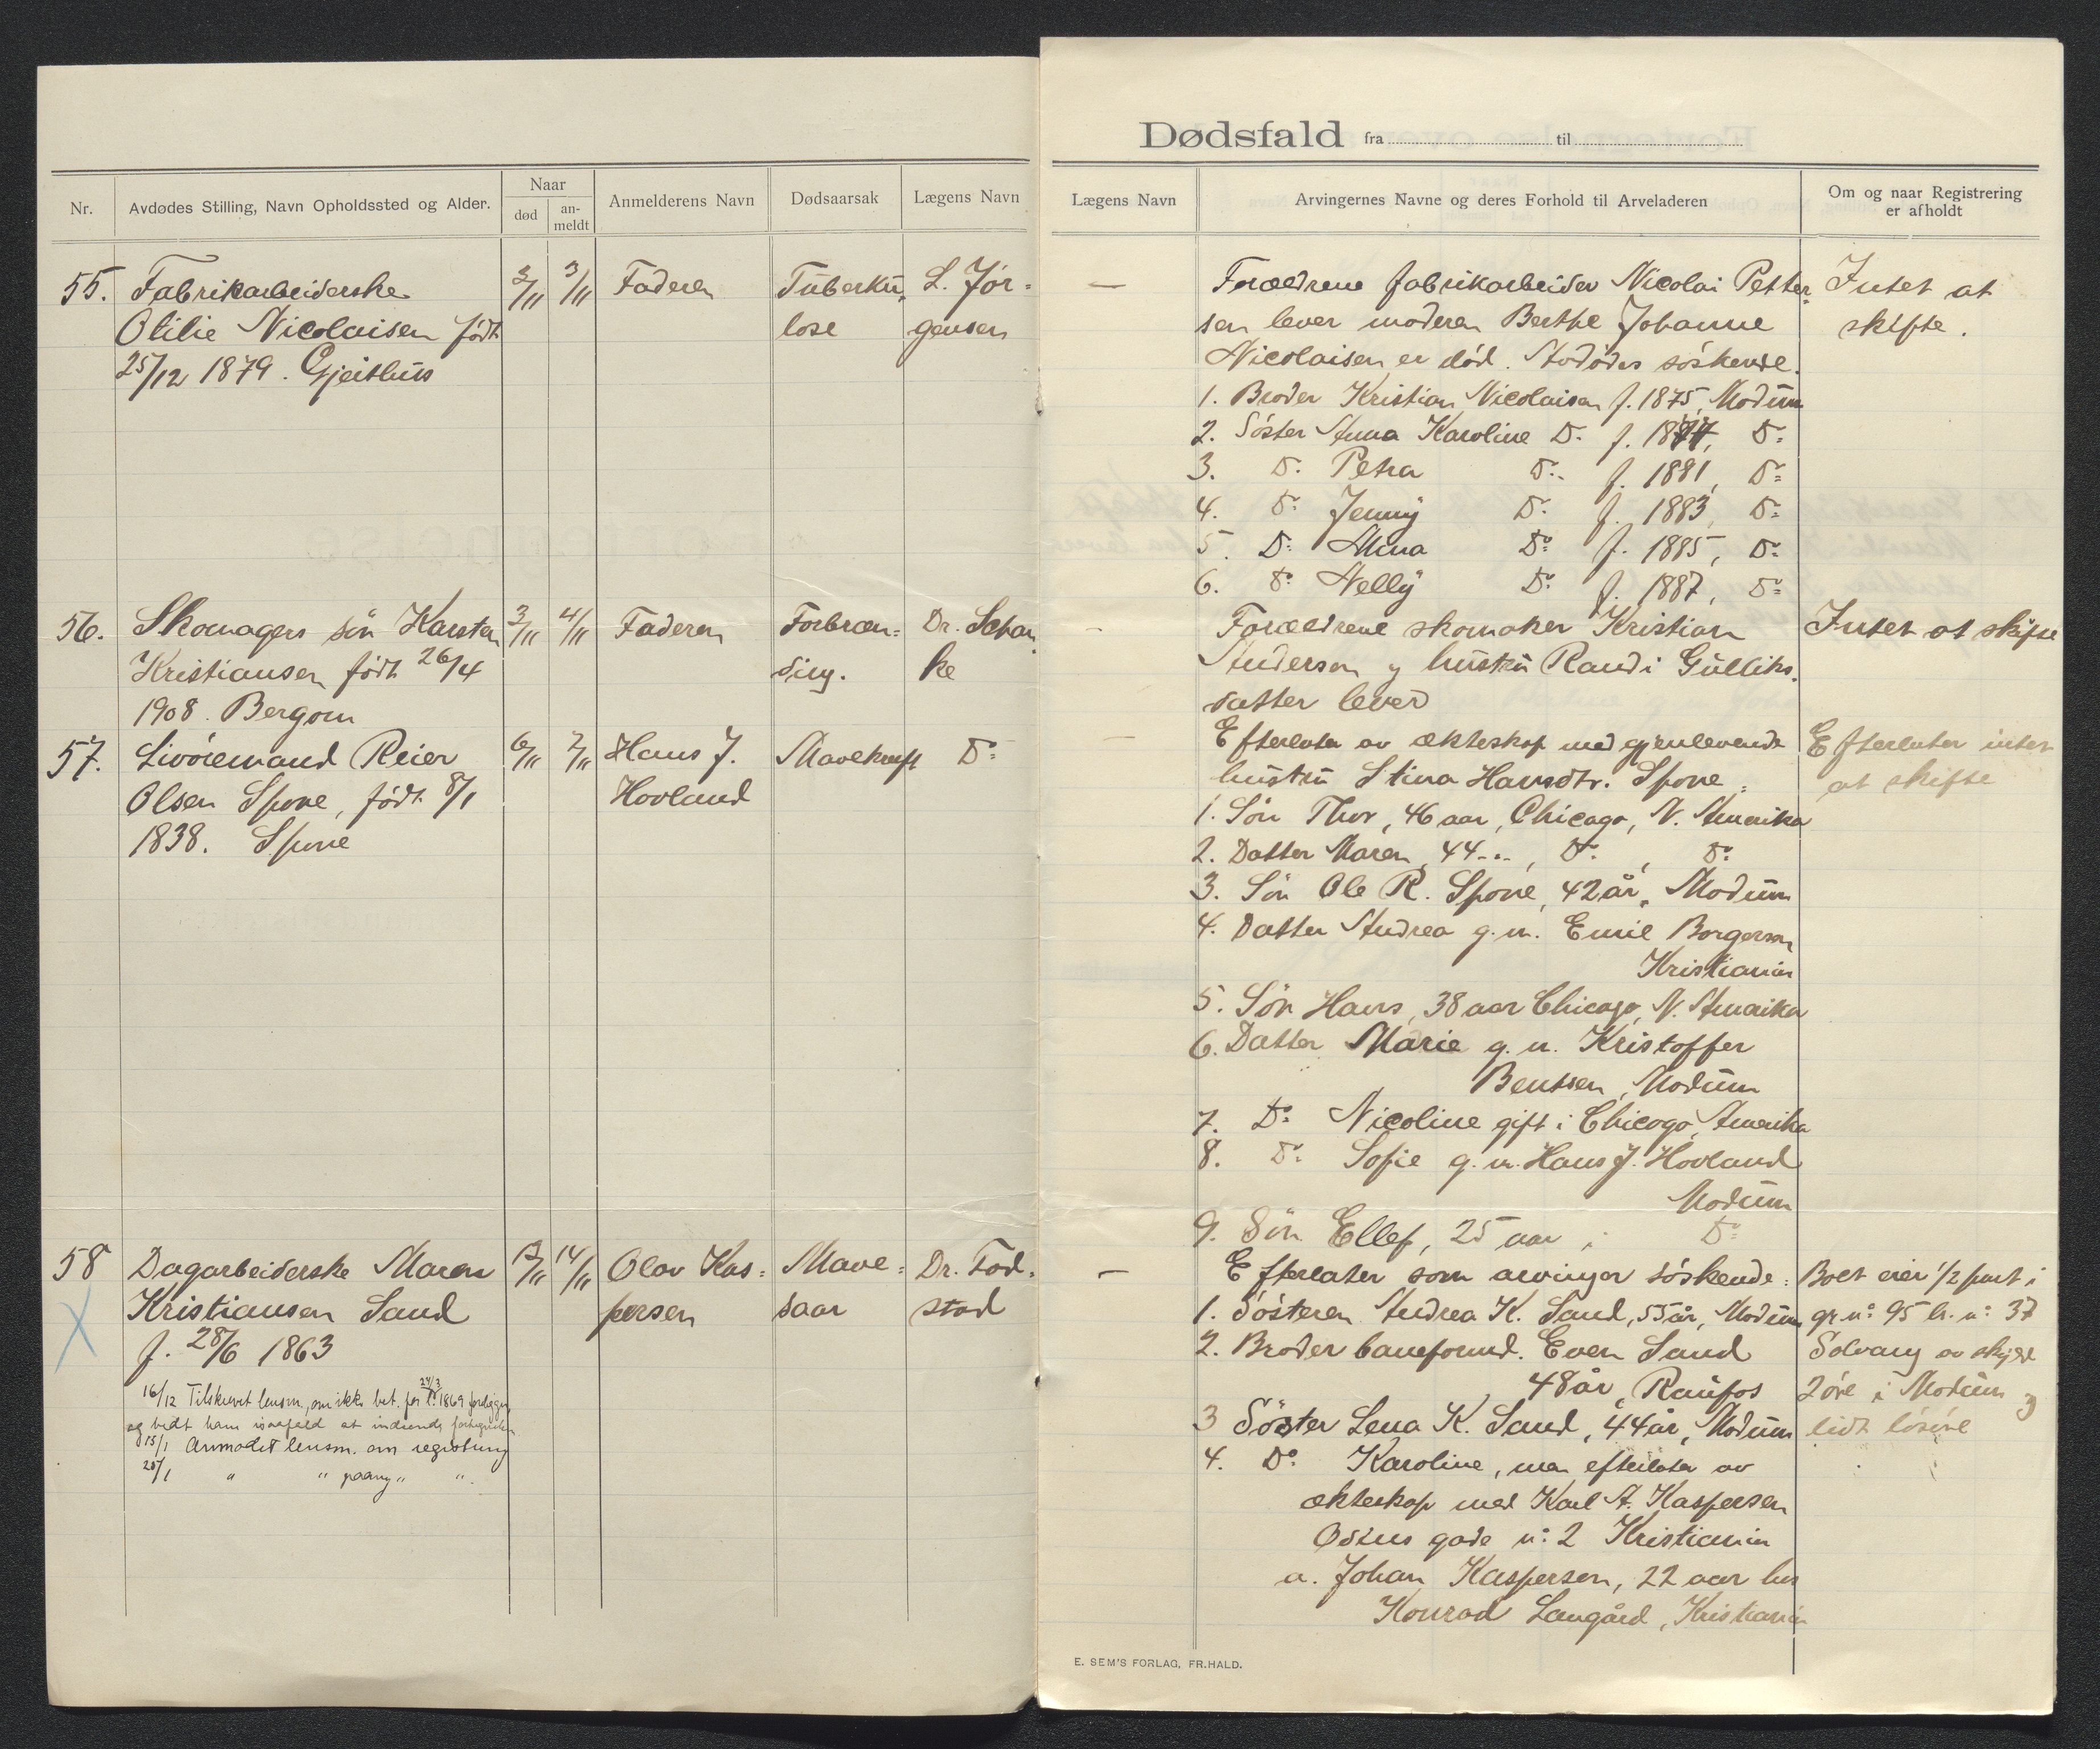 Dødsfald fra til
Nr.
Avdødes Stilling, Navn Opholdssted og Alder.
Naar
død
an-
meldt
Anmelderens Navn
Dødsaarsak
Lægens Navn
Lægens Navn
Arvingernes Navne og deres Forhold til Arveladeren
Om og naar Registrering
er afholdt
55.
Fabrikarbeiderske
Otilie Nicolaisen født
25/12 1879. Gjeithus
2/11
3/11
Faderen
Tuberku-
lose
L. Jør-
gensen
Forældrene fabrikarbeider Nicolai Petter-
sen lever moderen Berthe Johanne
Nicolaisen er død. Avdødes søskende.
1. Broder Kristian Nicolaisen f. 1875, Modum
2. Søster Anna Karoline Do. f. 1877, Do.
3. Do. Petra Do. f. 1881, Do.
4. Do. Jenny Do. f. 1883, Do.
5. Do. Mina Do. f. 1885, Do.
6. Do. Nelly Do. f. 1887, Do.
Intet at
skifte.
56.
Skomagers søn Karsten
Kristiansen født 26/4
1908. Bergom
3/11
4/11
Faderen
Forbræn-
ding.
Dr. Schan-
ke
Forældrene skomaker Kristian
Andersen og hustru Randi Gulliks-
datter lever
Intet at skifte
57.
Livøiemand Reier
Olsen Spone, født 8/1
1838. Spone
6/11
7/11
Hans J.
Hovland
Mavekræft
Do.
Efterlater av ekteskap med gjenlevende
hustru Stina Hansdtr. Spone:
1. Søn Thor, 46 aar, Chicago, N. Amerika
2. Datter Maren, 44 -"-, Do., Do.
3. Søn Ole R. Spone, 42 år, Modum
4. Datter Andrea g. m. Emil Borgersen
Kristiania
5. Søn Hans, 38 aar Chicago, N. Amerika
6. Datter Marie g. m. Kristoffer
Bentsen, Modum
7. Do. Nicoline gift i Chicago, Amerika
8. Do. Sofie g. m. Hans J. Hovland
Modum
9. Søn Ellef, 25 aar, Do.
Efterlater intet
at skifte
58
Dagarbeiderske Maren
Kristiansen Sand
f. 28/6 1863
12/11
14/11
Olav Kas-
persen
Mave-
saar
Dr. Tod-
stad
16/12 Tilskrevet lensm., om skk. bet. for 24/3 1869 foreligger,
og bedt ham isaafald at indsende fortegnelsen
15/1 Anmodet lensm. om registrering
28/1 " " paany " "
Efterlater som arvinger søskende:
1. Søsteren Andrea K. Sand, 55 år, Modum
2. Broder baneformd. Even Sand
48 år, Raufos
3 Søster Lena K. Sand, 44 år, Modum
4. Do. Karoline, men efterlater av
ekteskap med Karl A. Kaspersen
gade no. 2 Kristiania
a. Johan Kaspersen, 22 aar hos
Konrad Langård, Kristiania
Boet eier 1/2 part i
gr. no. 95 br. no. 37
Solvang av skyld
2 øre i Modum og
lidt løsøre
E. SEM'S FORLAG, FR.HALD.